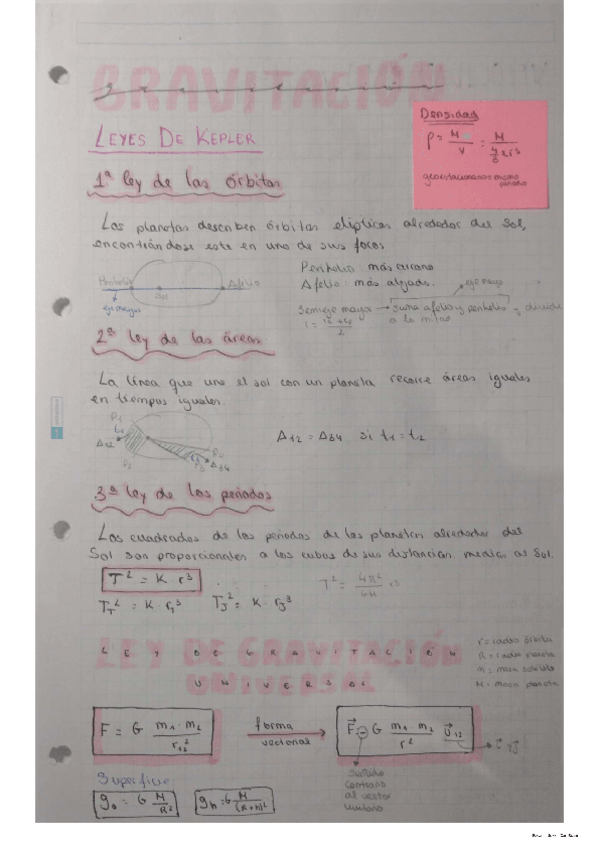 GRAVITACIÓN
Densidad
ρ = M/V = M/(4/3 π r³)
geoestacionarios mismo
periodo
LEYES DE KEPLER
1ª ley de las órbitas
Los planetas describen órbitas elípticas alrededor del Sol,
encontrándose este en uno de sus focos
Perihelio Sol Afelio
eje mayor
Perihelio: más cercano
Afelio: más alejado.
eje mayor
Semieje mayor → suma afelio y perihelio → dividido
a la mitad
2ª ley de las áreas
La línea que une el sol con un planeta recorre áreas iguales
en tiempos iguales.
P1
t1
A12
P2
P4
P3 A34
A12 = A34 si t1 = t2
3ª ley de los periodos
Los cuadrados de los periodos de los planetas alrededor del
Sol son proporcionales a los cubos de sus distancias medias al Sol.
T² = K · r³
T² = 4π²/GM r³
T_T² = K · r_T³ T_J² = K · r_J³
LEY DE GRAVITACIÓN
UNIVERSAL
r = radio órbita
R = radio planeta
m = masa satélite
M = masa planeta
F = G m1 · m2 / r12²
forma
vectorial
F⃗ = - G m1 · m2 / r² u⃗12
Sentido
contrario
al vector
unitario
Superficie:
g0 = G M/R² gh = G M/(R+h)²